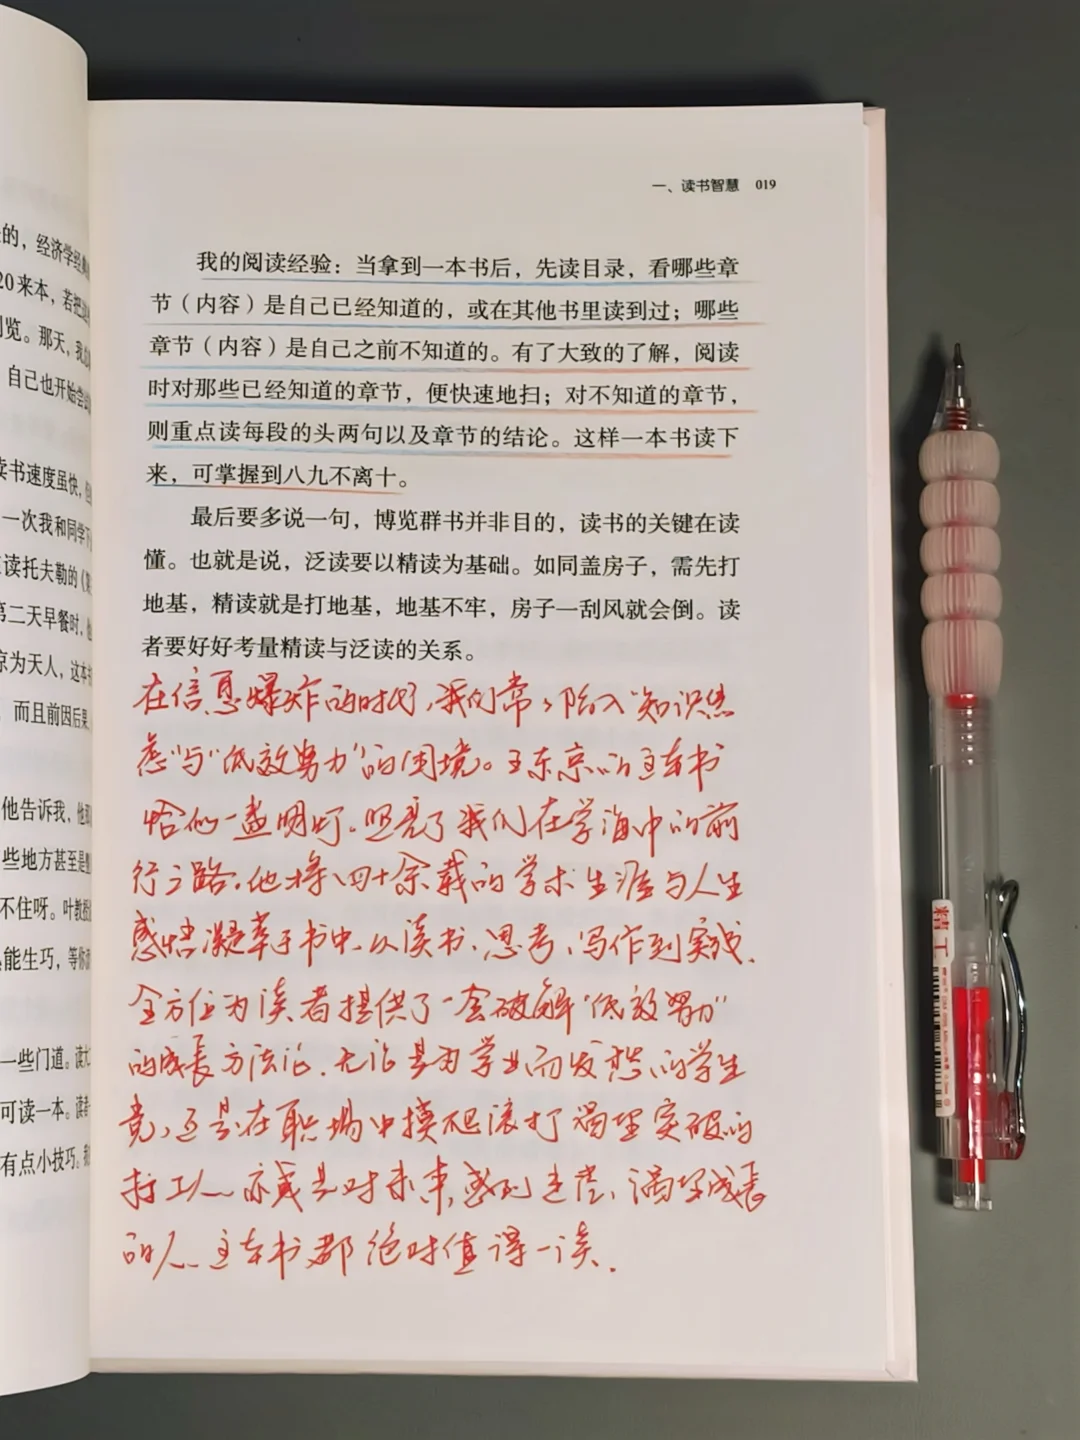 的，经济学经典
20来本，若把这
浏览。那天，我
自己也开始尝试
读书速度虽快，但
一次我和同学下
读托夫勒的《第
第二天早餐时，他
惊为天人，这本书
而且前因后果
他告诉我，他
些地方甚至是
不住呀。叶教授
熟能生巧，等你
一些门道。读
可读一本。读者
有点小技巧。
一、读书智慧 019
我的阅读经验：当拿到一本书后，先读目录，看哪些章
节（内容）是自己已经知道的，或在其他书里读到过；哪些
章节（内容）是自己之前不知道的。有了大致的了解，阅读
时对那些已经知道的章节，便快速地扫；对不知道的章节，
则重点读每段的头两句以及章节的结论。这样一本书读下
来，可掌握到八九不离十。
最后要多说一句，博览群书并非目的，读书的关键在读
懂。也就是说，泛读要以精读为基础。如同盖房子，需先打
地基，精读就是打地基，地基不牢，房子一刮风就会倒。读
者要好好考量精读与泛读的关系。
在信息爆炸的时代，我们常常陷入"知识焦
虑"与"低效努力"的困境。王东京的这本书
恰似一盏明灯。照亮了我们在学海中的前
行之路。他将四十余载的学术生涯与人生
感悟凝萃于书中、从读书、思考、写作到实践、
全方位为读者提供了一套破解"低效努力"
的成长方法论、无论是为学业而发愁的学生
党，还是在职场中摸爬滚打渴望突破的
打工人、亦或是对未来感到迷茫、渴望成长
的人、这本书都绝对值得一读.
精工